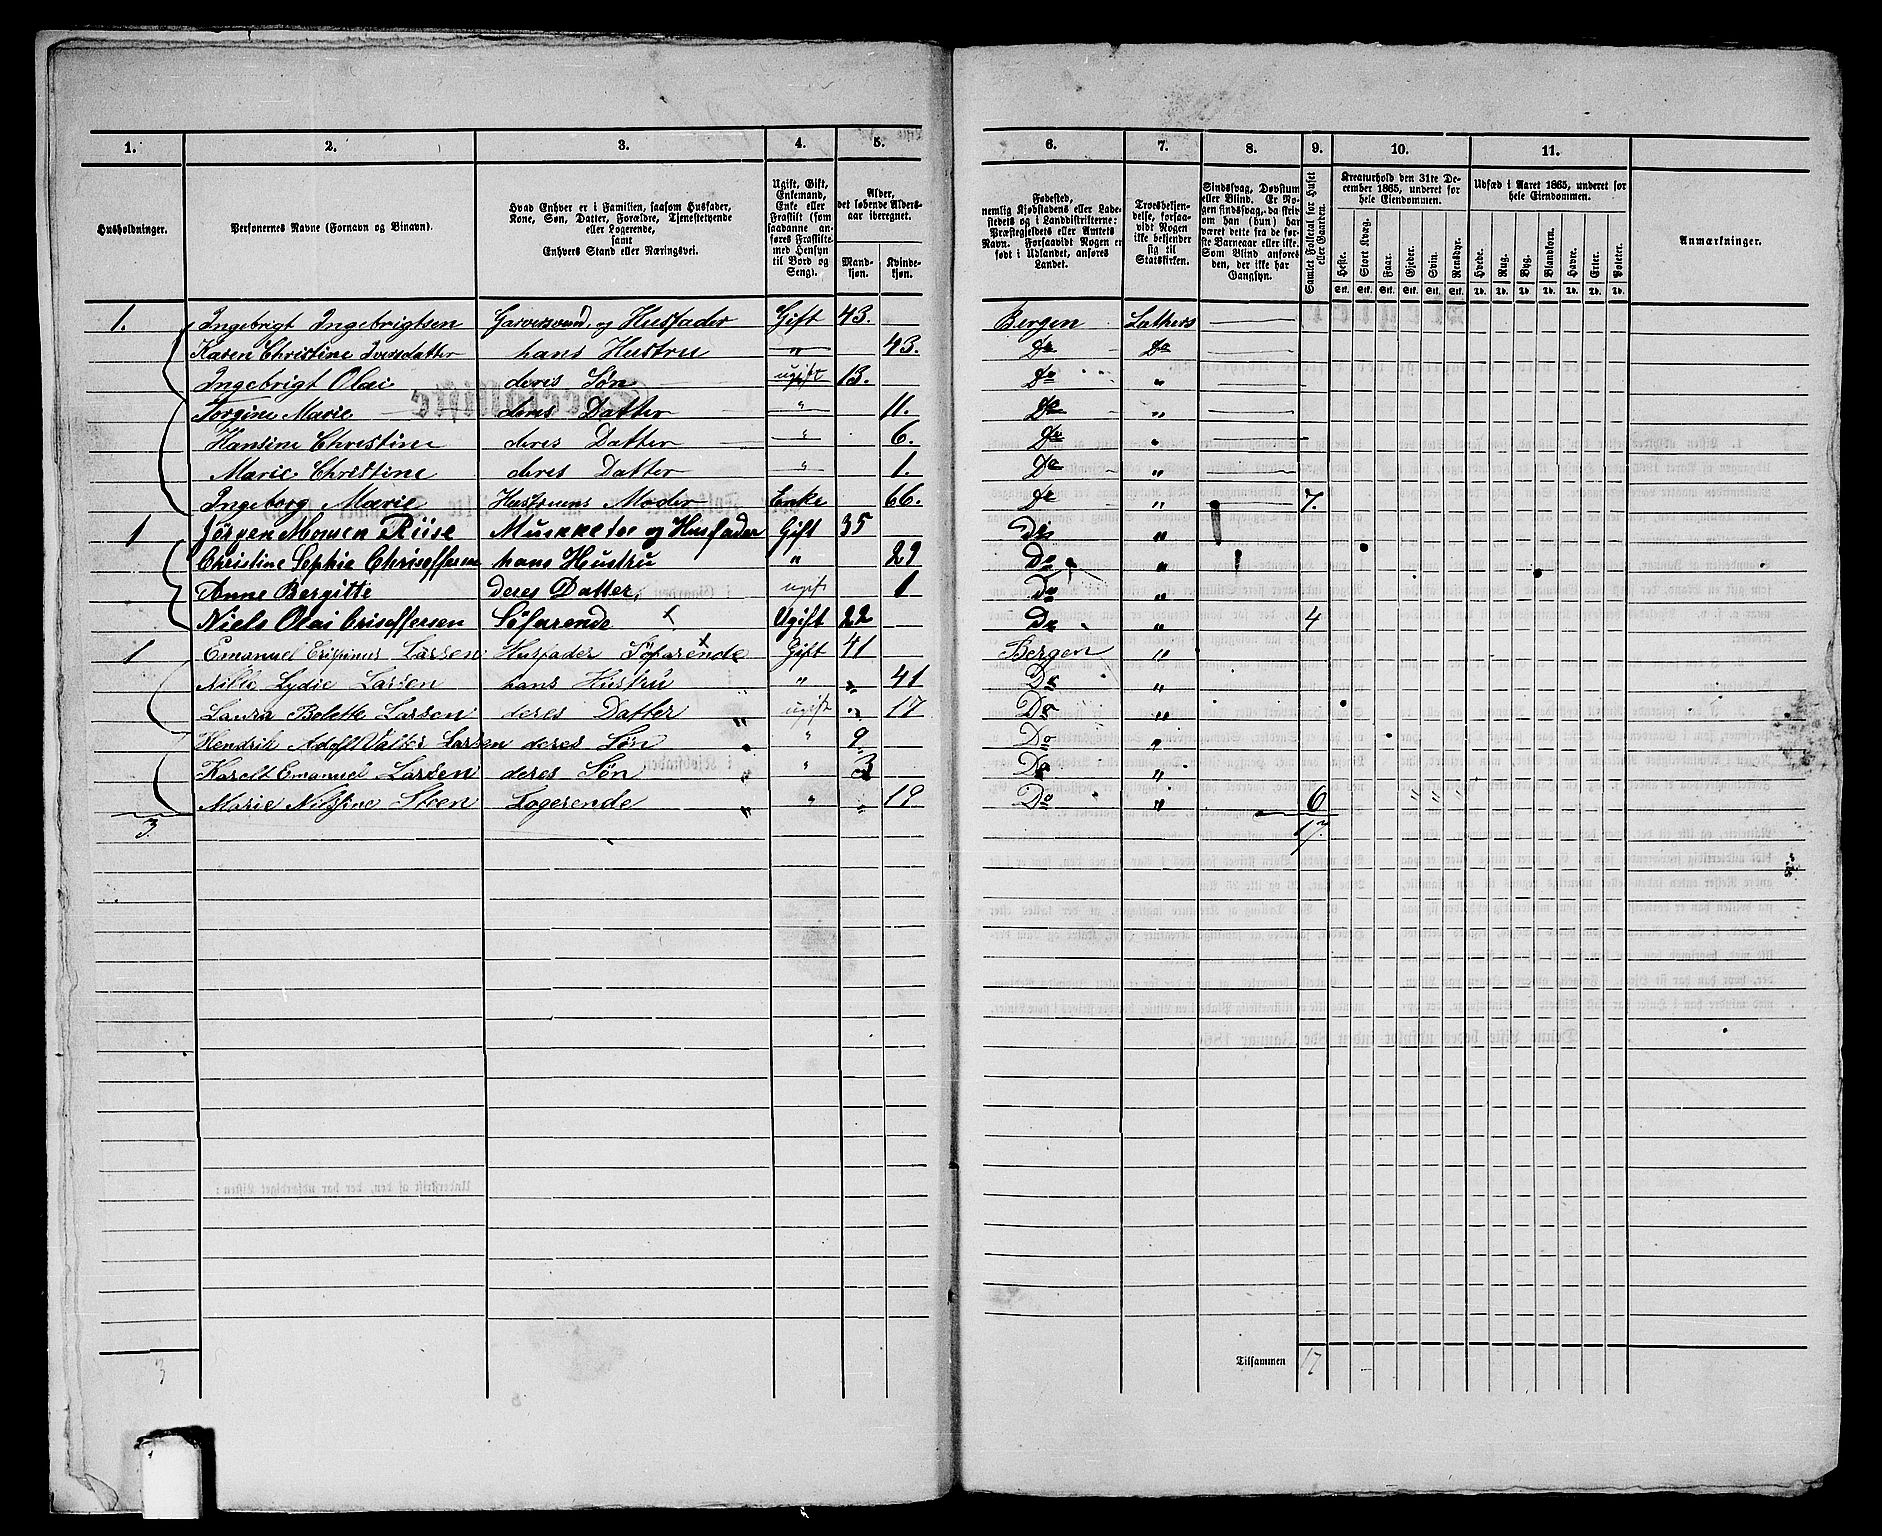 1. 2. 3. 4. 5. 6. 7. 8. 9. 10. 11.
Husholdninger.
Personernes Navne (Fornavn og Binavn).
Hvad Enhver er i Familien, saasom Husfader, Kone, Søn, Datter, Forældre, Tjenestetyende eller Logerende, samt Enhvers Stand eller Næringsvei.
Ugift, Gift, Enkemand, Enke eller Fraskilt (som saadanne anføres Fraskilte med Hensyn til Bord og Seng).
Alder, det løbende Aldersaar iberegnet.
Mandkjøn. Kvindekjøn.
Fødested, nemlig Kjøbstadens eller Ladestedets og i Landdistrikterne: Præstegjeldets eller Amtets Navn. Forsaavidt Nogen er født i Udlandet, anføres Landet.
Trosbekjendelse, forsaavidt Nogen ikke bekjender sig til Statskirken.
Sindssvag, Døvstum eller Blind. Er Nogen sindssvag, da skriv om han (hun) har været dette fra de første Barneaar eller ikke. Som Blind anføres den, der ikke har Gangsyn.
Samlet Folketal for Huset eller Gaarden.
Kreaturhold den 31te December 1865, underet for hele Eiendommen.
Heste. Stort Kvæg. Faar. Gjeder. Svin. Rensdyr.
Stk. Stk. Stk. Stk. Stk. Stk.
Udsæd i Aaret 1865, underet for hele Eiendommen.
Hvede. Rug. Byg. Blandkorn. Havre. Erter. Poteter.
Td. Td. Td. Td. Td. Td. Td.
Anmærkninger.
1. Ingebrigt Ingebrigtsen Garversvend, og Husfader Gift 43. Bergen Luthers
Karen Christine Iversdatter hans Hustru " 43. Do Do
Ingebrigt Olai deres Søn ugift 13. Do "
Torgine Marie deres Datter " 11. Do "
Hansine Christine deres Datter " 6. Do "
Marie Christine deres Datter " 1. Do "
Ingeborg Marie Hustruens Moder Enke 66. Do " 7.
1 Jørgen Monsen Riise Muskketer og Husfader Gift 35 Do "
Christine Sophie Chrisoffersen hans Hustru " 29 Do "
Anne Bergitte deres Datter, ugift 1 Do "
Niels Olai Crisoffersen Søfarende Ugift 22 Do " 4
1 Emanuel Larsen Husfader Søfarende Gift 41 Bergen "
Lydie Larsen hans Hustru " " 41 Do "
Laura Bolette Larsen deres Datter " ugift " 17 Do "
Hendrik Adolf Valter Larsen deres Søn " " 9 Do "
Harolt Emanuel Larsen deres Søn " " 3 Do "
Marie Nilsine Steen Logerende " " " 19 Do " 6
3. 17.
Tilsammen 17
3